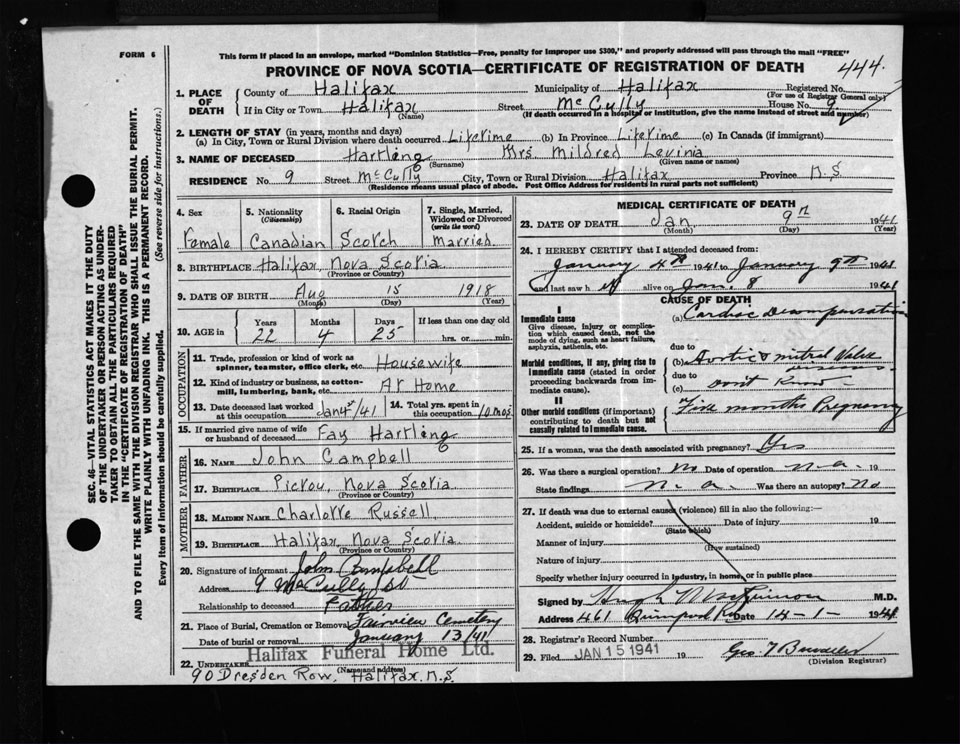 FORM 6
This form if placed in an envelope, marked "Dominion Statistics—Free, penalty for improper use $300," and properly addressed will pass through the mail "FREE"
PROVINCE OF NOVA SCOTIA—CERTIFICATE OF REGISTRATION OF DEATH 444.
SEC. 46—VITAL STATISTICS ACT MAKES IT THE DUTY
OF THE UNDERTAKER OR PERSON ACTING AS UNDER-
TAKER TO OBTAIN ALL THE PARTICULARS REQUIRED
IN THE "CERTIFICATE OF REGISTRATION OF DEATH"
AND TO FILE THE SAME WITH THE DIVISION REGISTRAR WHO SHALL ISSUE THE BURIAL PERMIT.
WRITE PLAINLY WITH UNFADING INK. THIS IS A PERMANENT RECORD.
Every item of information should be carefully supplied. (See reverse side for instructions.)
1. PLACE OF DEATH
County of Halifax Municipality of Halifax Registered No.
(For use of Registrar General only)
If in City or Town Halifax Street McCully House No. 9
(Name) (If death occurred in a hospital or institution, give the name instead of street and number)
2. LENGTH OF STAY (in years, months and days)
(a) In City, Town or Rural Division where death occurred Lifetime (b) In Province Lifetime (c) In Canada (if immigrant)
3. NAME OF DECEASED Hartling Mrs. Mildred Levinia
(Surname) (Given name or names)
RESIDENCE No. 9 Street McCully City, Town or Rural Division Halifax Province N.S
(Residence means usual place of abode. Post Office Address for residents in rural parts not sufficient)
4. Sex
Female
5. Nationality
(Citizenship)
Canadian
6. Racial Origin
Scotch
7. Single, Married,
Widowed or Divorced
(write the word)
Married.
8. BIRTHPLACE Halifax, Nova Scotia
(Province or Country)
9. DATE OF BIRTH Aug 15 1918
(Month) (Day) (Year)
10. AGE in
Years Months Days If less than one day old
22 4 25 hrs. or min.
OCCUPATION
11. Trade, profession or kind of work as
spinner, teamster, office clerk, etc. Housewife
12. Kind of industry or business, as cotton-
mill, lumbering, bank, etc. At Home
13. Date deceased last worked
at this occupation Jan 4th/41
14. Total yrs. spent in
this occupation 10 mos.
15. If married give name of wife
or husband of deceased Fay Hartling
FATHER
16. NAME John Campbell
17. BIRTHPLACE Pictou, Nova Scotia
(Province or Country)
MOTHER
18. MAIDEN NAME Charlotte Russell,
19. BIRTHPLACE Halifax, Nova Scotia
(Province or Country)
20. Signature of informant John Campbell
Address 9 McCully St
Relationship to deceased Father
21. Place of Burial, Cremation or Removal Fairview Cemetery
Date of burial or removal January 13/41
Halifax Funeral Home Ltd.
22. UNDERTAKER
(Name and address)
90 Dresden Row, Halifax. N.S.
MEDICAL CERTIFICATE OF DEATH
23. DATE OF DEATH Jan 9th 1941
(Month) (Day) (Year)
24. I HEREBY CERTIFY that I attended deceased from:
January 4th 1941 to January 9th 1941
and last saw h er alive on Jan. 8 1941
CAUSE OF DEATH
I
Immediate cause
Give disease, injury or complica-
tion which caused death, not the
mode of dying, such as heart failure,
asphyxia, asthenia, etc.
(a) Cardiac Decompensation
due to
Morbid conditions, if any, giving rise to
immediate cause (stated in order
proceeding backwards from im-
mediate cause).
(b) Aortic & mitral Valve
disease
due to
(c) Don't Know
II
Other morbid conditions (if important)
contributing to death but not
causally related to immediate cause.
Five months Pregnancy
25. If a woman, was the death associated with pregnancy? Yes
26. Was there a surgical operation? No Date of operation n.a. 19
State findings n. a. Was there an autopsy? No
27. If death was due to external causes (violence) fill in also the following:—
Accident, suicide or homicide? Date of injury 19
(State which)
Manner of injury
(How sustained)
Nature of injury
Specify whether injury occurred in industry, in home, or in public place
Signed by Hugh M.D.
Address 461 Date 14-1- 1941
28. Registrar's Record Number
29. Filed JAN 15 1941 19 Geo
(Division Registrar)